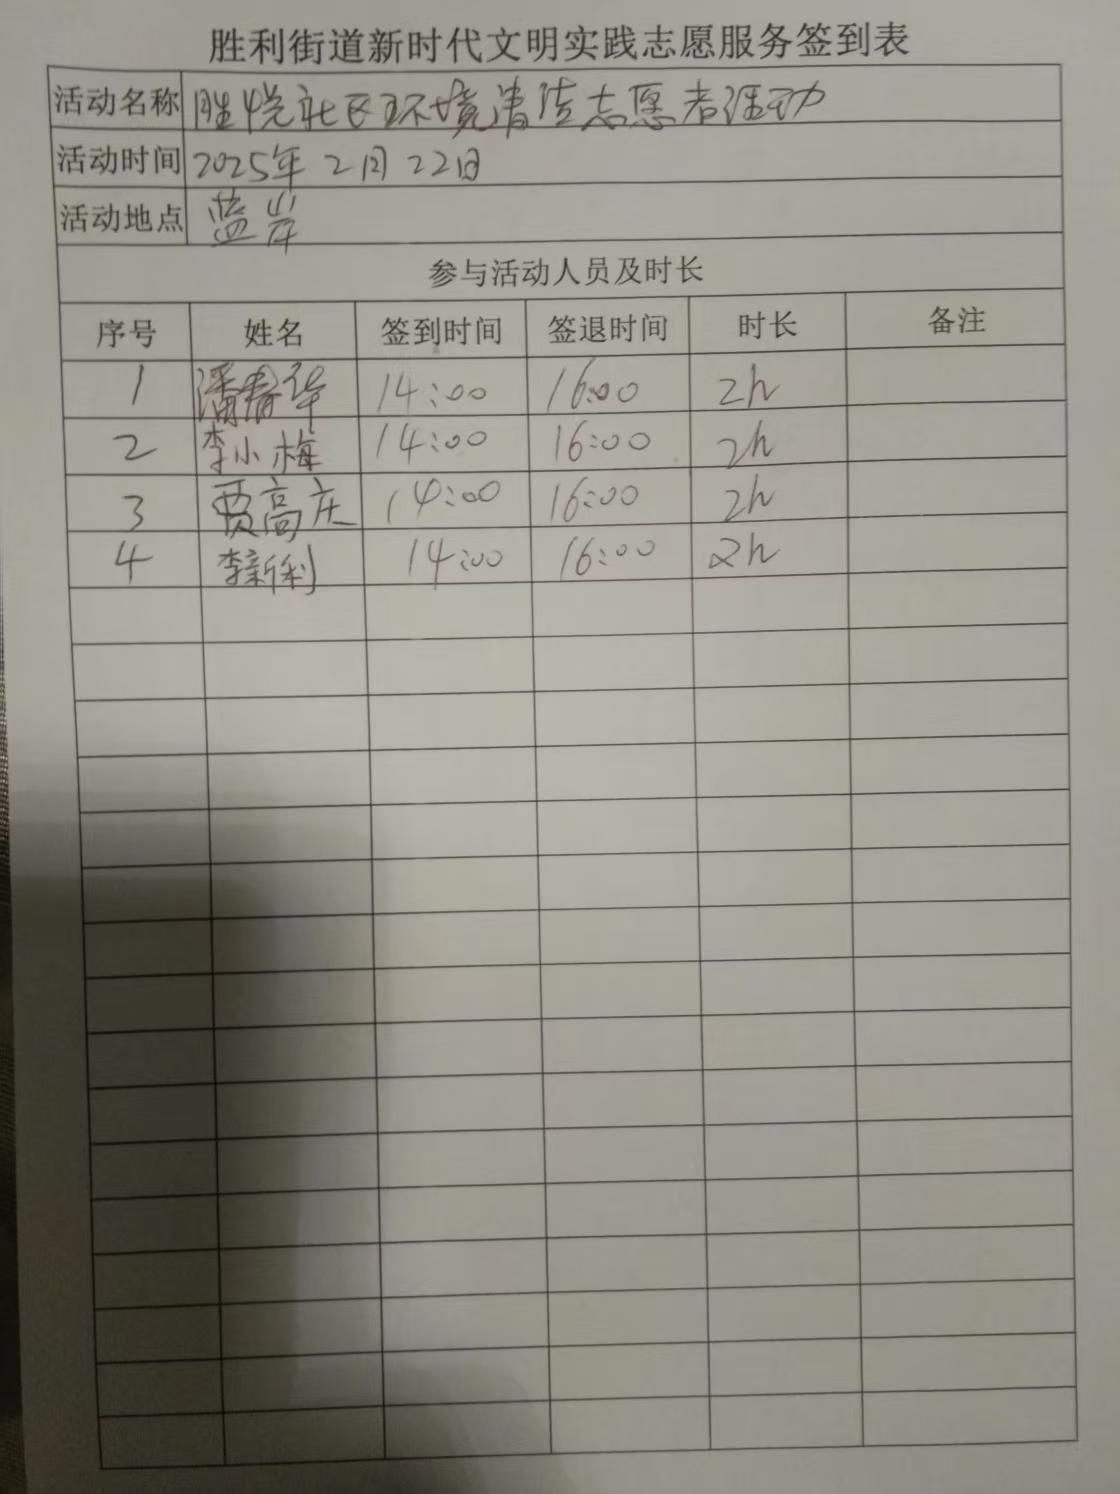 胜利街道新时代文明实践志愿服务签到表
活动名称 胜悦社区环境清洁志愿者活动
活动时间 2025年2月22日
活动地点 蓝岸
参与活动人员及时长
序号 姓名 签到时间 签退时间 时长 备注
1 潘春华 14:00 16:00 2h
2 李小梅 14:00 16:00 2h
3 贾高庆 14:00 16:00 2h
4 李新利 14:00 16:00 2h